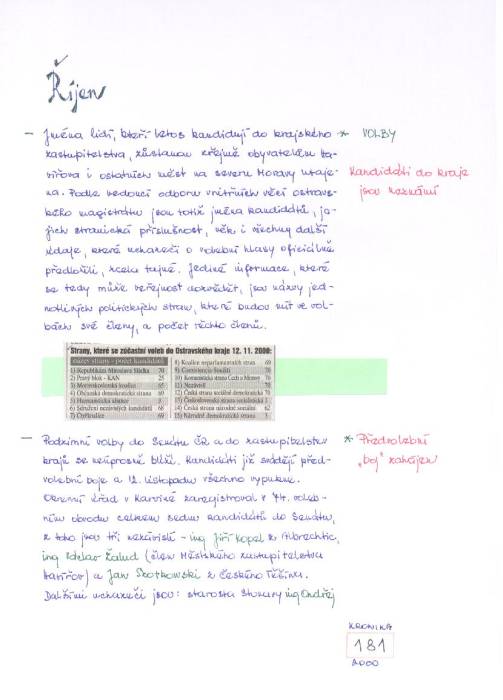 Říjen
– Jména lidí, kteří letos kandidují do krajského
zastupitelstva, zůstanou zřejmě obyvatelům Ha-
vířova i ostatních měst na severu Moravy utaje-
na. Podle vedoucí odboru vnitřních věcí ostrav-
ského magistrátu jsou totiž jména kandidátů, je-
jich stranická příslušnost, věk i všechny další
údaje, které uchazeči o volební hlasy oficiálně
předložili, zcela tajné. Jediné informace, které
se tedy může veřejnost dozvědět, jsou názvy jed-
notlivých politických stran, které budou mít ve vol-
bách své členy, a počet těchto členů.
* VOLBY
Kandidáti do kraje
jsou neznámí
Strany, které se zúčastní voleb do Ostravského kraje 12. 11. 2000:
název strany - počet kandidátů
1) Republikáni Miroslava Sládka 70
2) Pravý blok - KAN 25
3) Moravskoslezská koalice 65
4) Občanská demokratická strana 69
5) Humanistická aliance
6) Sdružení nezávislých kandidátů 68
8) Koalice neparlamentních stran 69
9) Coexistencia-Soužití 70
10) Komunistická strana Čech a Moravy 70
11) Nezávislí 70
12) Česká strana sociálně demokratická 70
13) Československá strana sociálnědem.
14) Česká strana národně sociální 62
15) Národně demokratická strana
– Podzimní volby do Senátu ČR a do zastupitelstev
krajů se neúprosně blíží. Kandidáti již svádějí před-
volební boje a 12. listopadu všechno vypukne.
Okresní úřad v Karviné zaregistroval v 74. voleb-
ním obvodu celkem sedm kandidátů do Senátu,
z toho jsou tři nezávislí - ing Jiří Kopel z Albrechtic,
ing Zdeslav Žalud (člen Městského zastupitelstva
Havířov) a Jan Szotkowski z Českého Těšína.
Dalšími uchazeči jsou: starosta Stonavy ing Ondřej
* Předvolební
„boj" zahájen
KRONIKA
181
2000